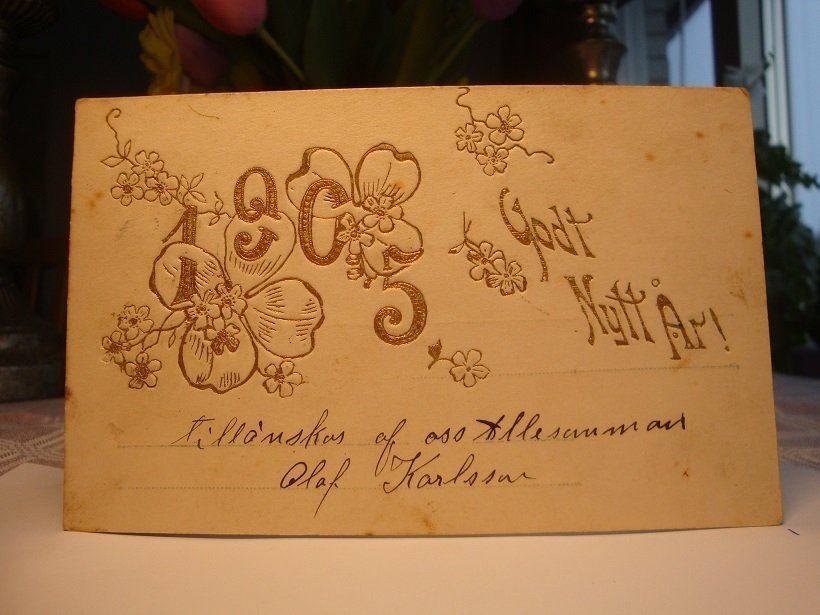 1905
Godt
Nytt År!
tillönskas af oss Allesamman
Olof Karlsson